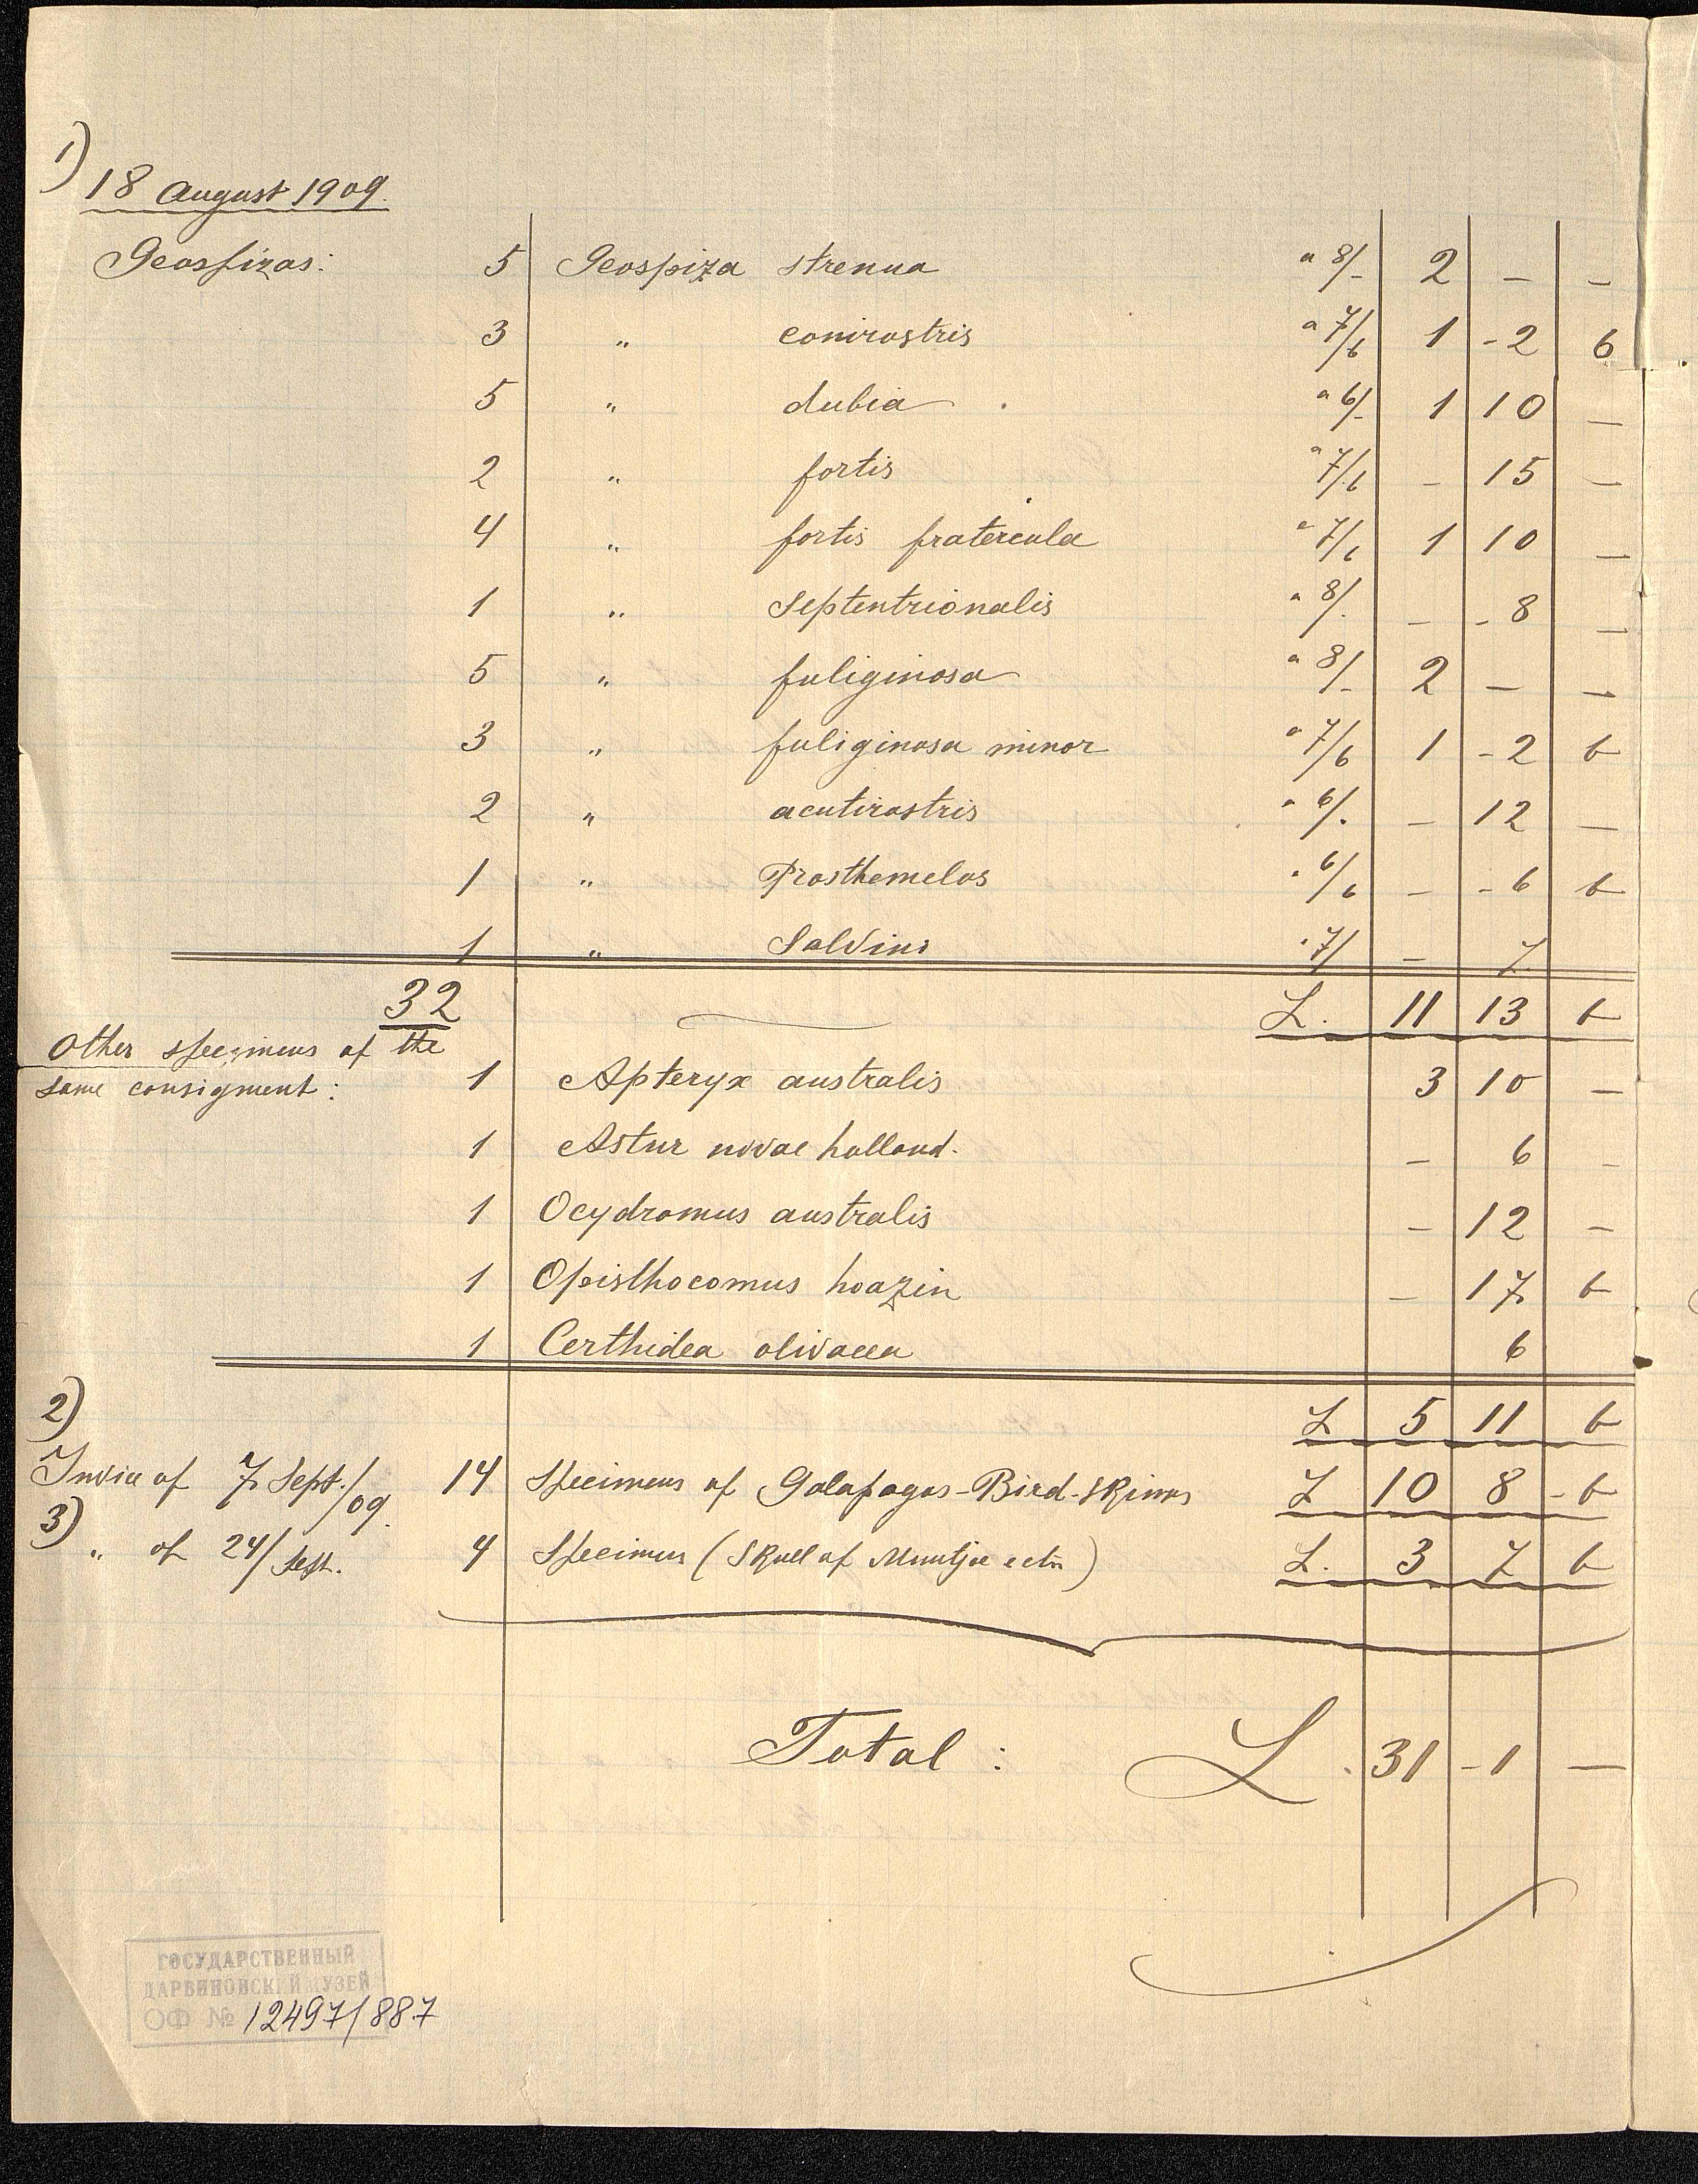 1)
18 August 1909.
Geospizas: 5 Geospiza strenua a 8/- 2 - -
3 " conirostris a 7/6 1 - 2 6
5 " dubia a 6/- 1 10 -
2 " fortis a 7/6 - 15 -
4 " fortis fratercula a 7/6 1 10 -
1 " Septentrionalis a 8/. - - 8 -
5 " fuliginosa a 8/- 2 - -
3 " fuliginosa minor a 7/6 1 - 2 6
2 " acutirostris a 6/. - 12 -
1 " Prosthemelas 6/6 - - 6 6
1 " Salvini 7/ - 7
32 L. 11 13 6
Other specimens of the
same consigment: 1 Apteryx australis 3 10 -
1 Astur novae holland. - 6 -
1 Ocydromus australis - 12 -
1 Opisthocomus hoazin - 17 6
1 Certhidea olivacea 6
2) L 5 11 6
Invice of 7 Sept./09. 14 Specimens of Galapagos-Bird-Skinns L 10 8 - 6
3) " of 24/Sept. 4 Specimen (Skull of Muntjac ectn) L. 3 7 6
Total: L. 31 - 1 -
ГОСУДАРСТВЕННЫЙ
ДАРВИНОВСКИЙ МУЗЕЙ
ОФ № 12497/887